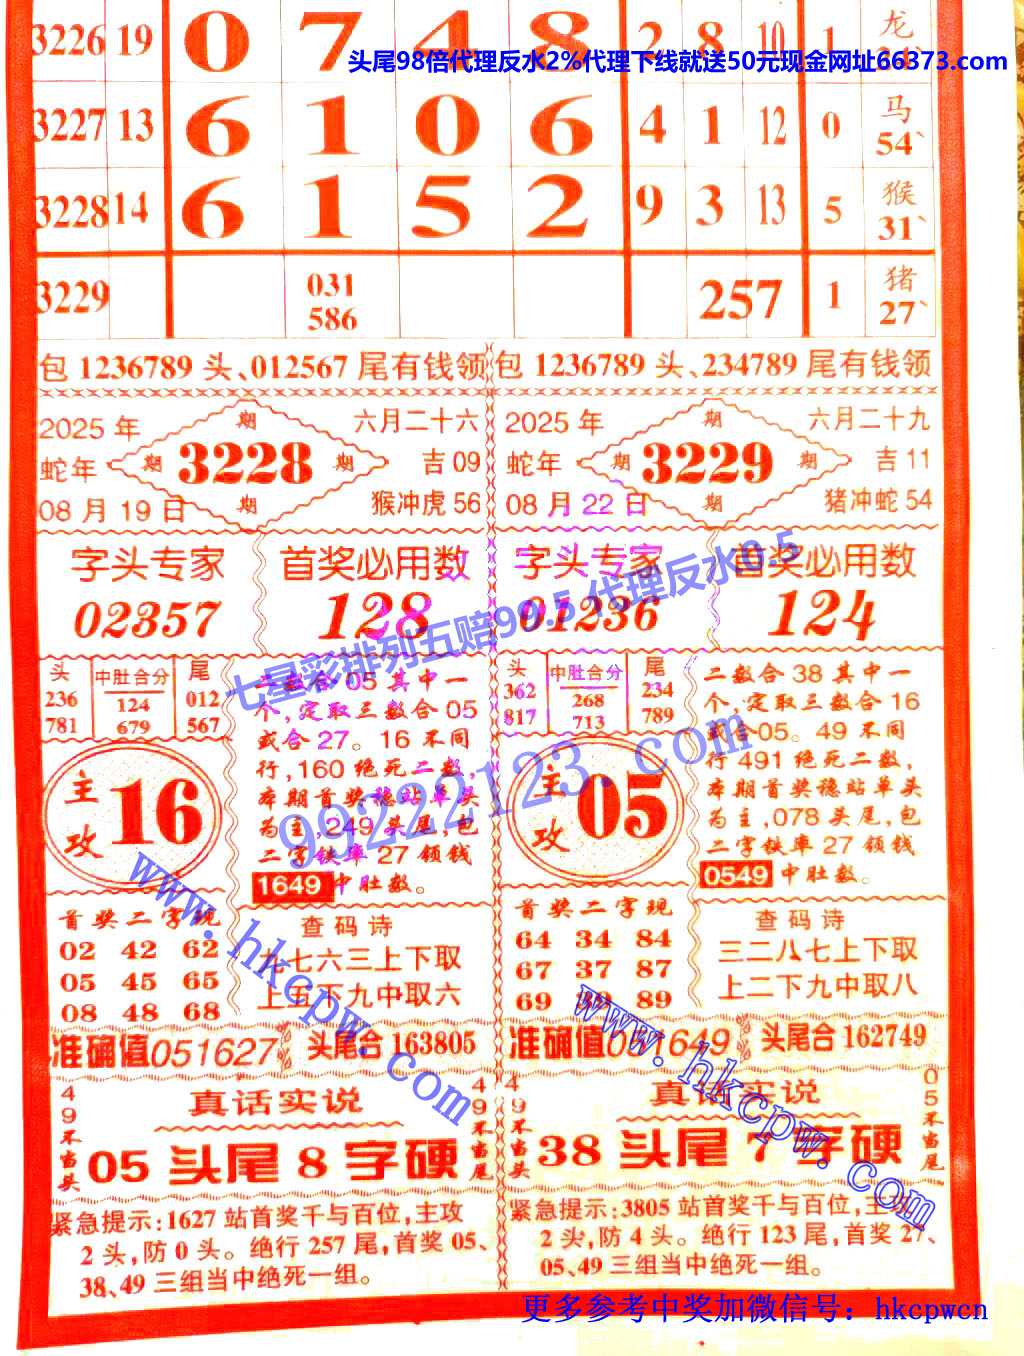 3226 19 0 7 4 8 2 8 10 1 龙
头尾98倍代理反水2%代理下线就送50元现金网址66373.com
3227 13 6 1 0 6 4 1 12 0 马 54
3228 14 6 1 5 2 9 3 13 5 猴 31
3229 031 586 257 1 猪 27
包 1236789 头、012567 尾有钱领
包 1236789 头、234789 尾有钱领
2025 年 期 六月二十六
蛇年 期 3228 期 吉 09
08 月 19 日 期 猴冲虎 56
2025 年 期 六月二十九
蛇年 期 3229 期 吉 11
08 月 22 日 期 猪冲蛇 54
字头专家 首奖必用数
02357 128
字头专家 首奖必用数
01236 124
七星彩排列五赔99.5 代理反水0.5
99222123.com
头 中肚合分 尾
236 124 012
781 679 567
主攻 16
二数合 05 其中一
个,定取三数合 05
或合 27。16 不同
行,160 绝死二数,
本期首奖稳站单头
为主,249 头尾,包
二字铁率 27 领钱
1649 中肚数。
头 中肚合分 尾
362 268 234
817 713 789
主攻 05
二数合 38 其中一
个,定取三数合 16
或合05。49 不同
行 491 绝死二数,
本期首奖稳站单头
为主,078 头尾,包
二字铁率 27 领钱
0549 中肚数。
首奖二字现
02 42 62
05 45 65
08 48 68
查码诗
九七六三上下取
上五下九中取六
首奖二字现
64 34 84
67 37 87
69 39 89
查码诗
三二八七上下取
上二下九中取八
准确值051627 头尾合 163805
准确值 649 头尾合 162749
www.hkcpw.com
www.hkcpw.com
49不当头
真话实说
05 头尾 8 字硬
49不当尾
49不当头
真话实说
38 头尾 7 字硬
05不当尾
紧急提示:1627 站首奖千与百位,主攻
2 头,防 0 头。绝行 257 尾,首奖 05、
38、49 三组当中绝死一组。
紧急提示:3805 站首奖千与百位,主攻
2 头,防 4 头。绝行 123 尾,首奖 27、
05、49 三组当中绝死一组。
更多参考中奖加微信号: hkcpwcn